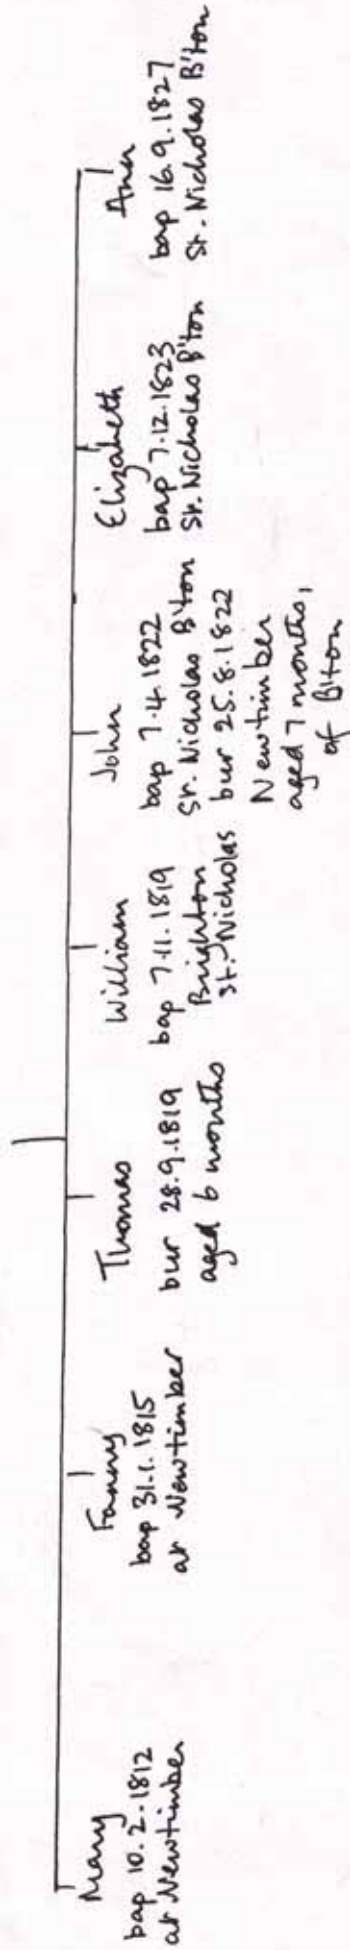 Mary
bap 10.2.1812
at Newtimber
Fanny
bap 31.1.1815
at Newtimber
Thomas
bur 28.9.1819
aged 6 months
William
bap 7.11.1819
Brighton
St. Nicholas
John
bap 7.4.1822
St. Nicholas B'ton
bur 25.8.1822
Newtimber
aged 7 months,
of B'ton
Elizabeth
bap 7.12.1823
St. Nicholas B'ton
Ann
bap 16.9.1827
St. Nicholas B'ton